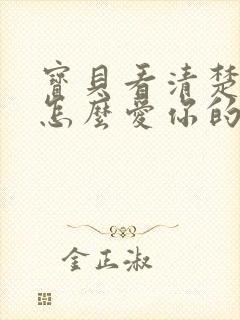 寶貝看清楚
怎麼愛你的
金正淑